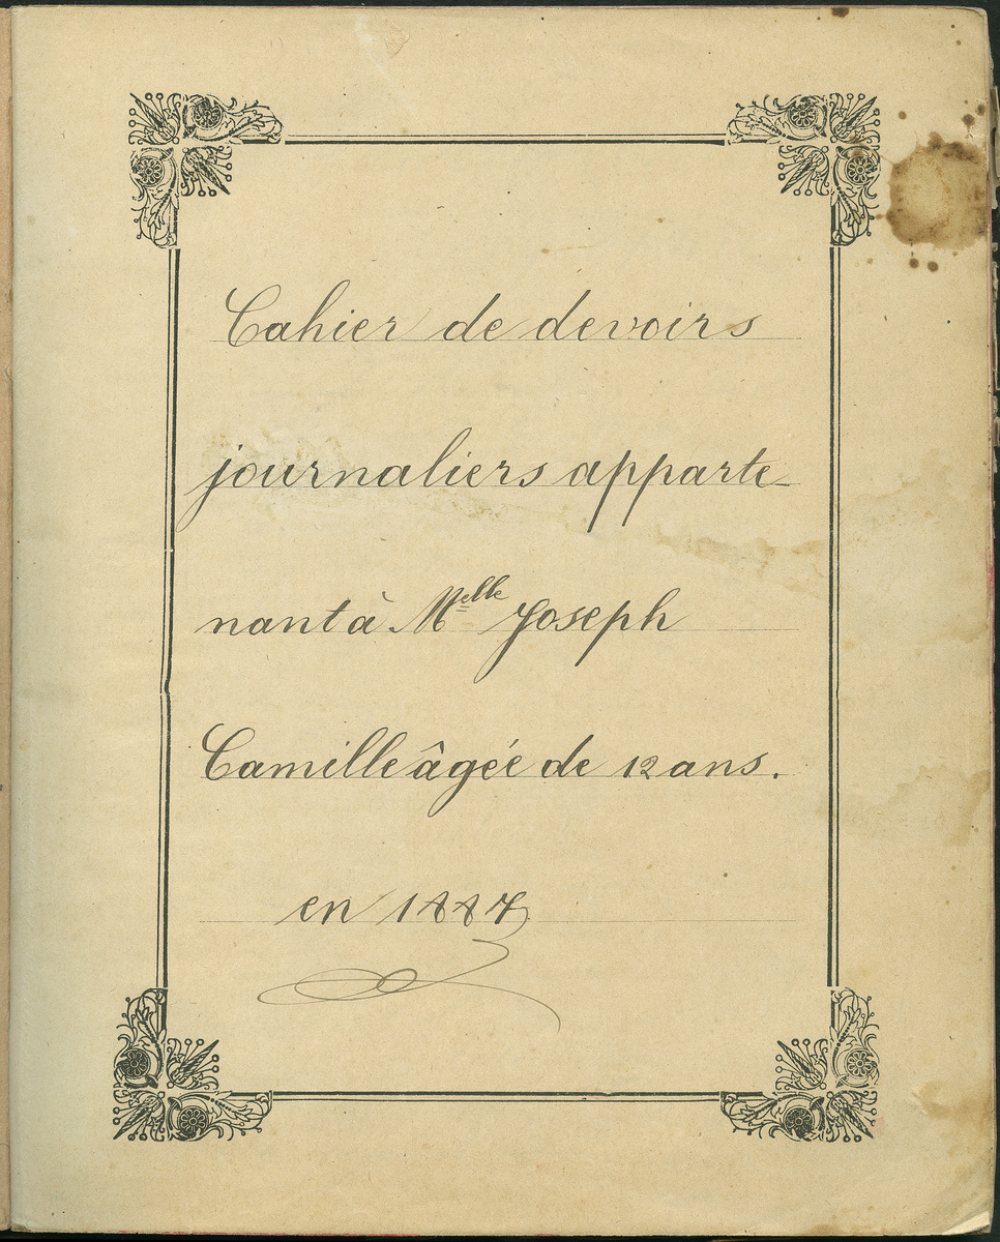 Cahier de devoirs
journaliers apparte-
nant à Melle Joseph
Camille âgée de 12 ans.
en 1887